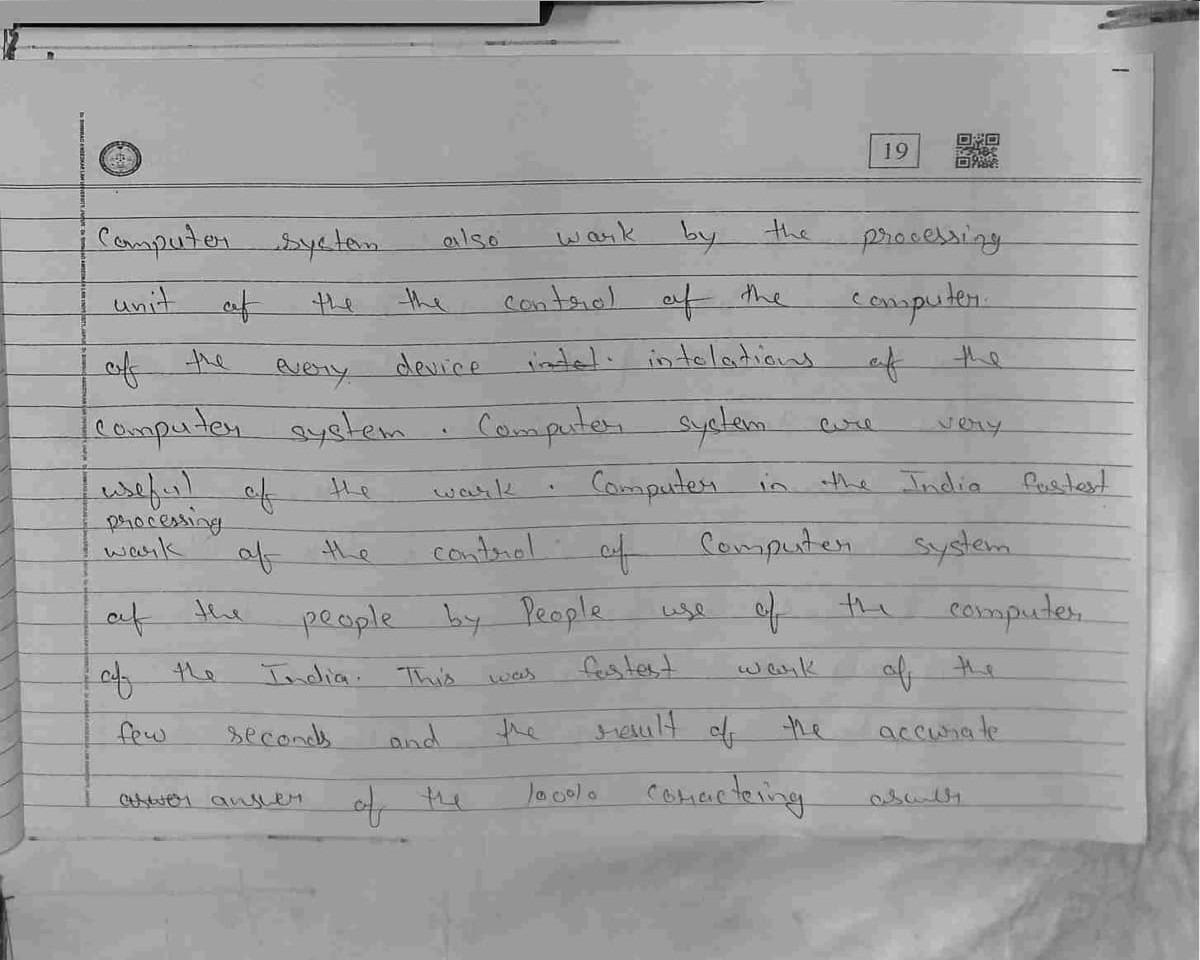 19
Computer system also work by the processing
unit of the the control of the computer.
off the every device intel. intolations of the
computer system. Computer system are very
useful of the work. Computer in the India fastest
processing
work of the control of Computer system
of the people by People use of the computer
of the India. This was fastest work of the
few seconds and the result of the accurate
answer of the 100%